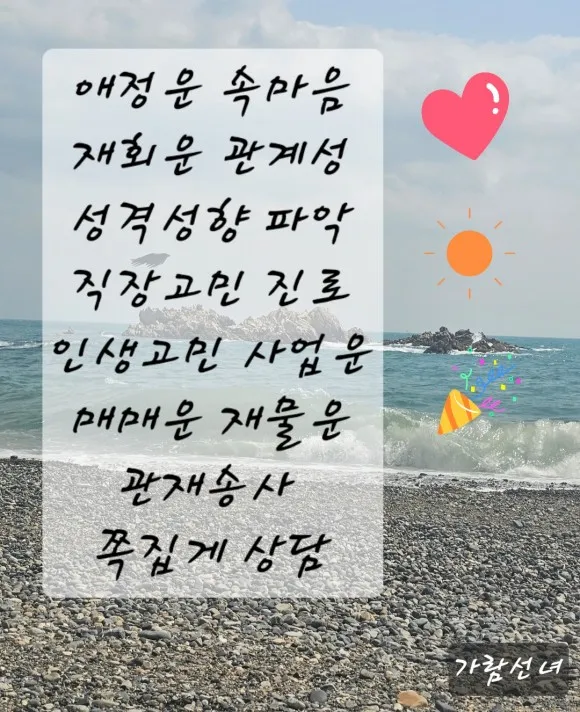 애정운 속마음
재회운 관계성
성격성향 파악
직장고민 진로
인생고민 사업운
매매운 재물운
관재송사
쪽집게 상담
가람선녀